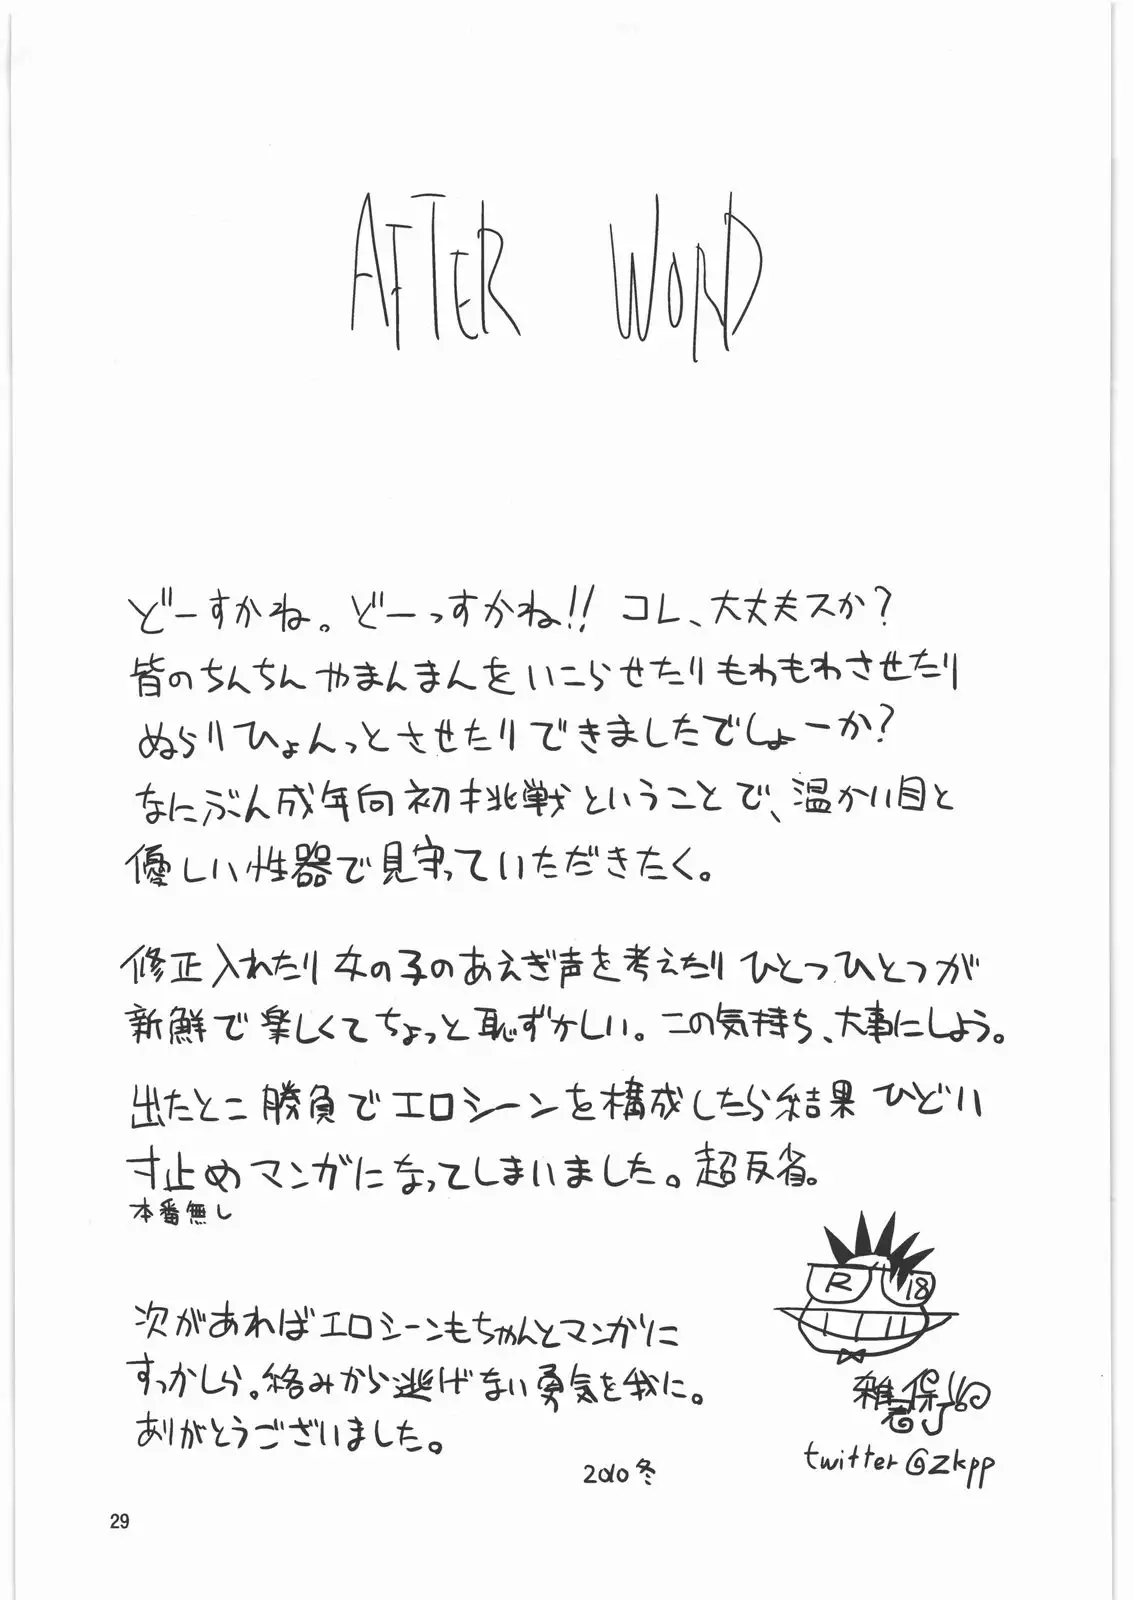 AFTER WORD
どーすかね。どーっすかね!! コレ、大丈夫スか?
皆のちんちんやまんまんをいこらせたりもわもわさせたり
ぬらりひょんっとさせたりできましたでしょーか?
なにぶん成年向初挑戦ということで、温かい目と
優しい性器で見守っていただきたく。
修正入れたり女の子のあえぎ声を考えたりひとつひとつが
新鮮で楽しくてちょっと恥ずかしい。この気持ち、大事にしよう。
出たとこ勝負でエロシーンを構成したら結果ひどい
寸止めマンガになってしまいました。超反省。
本番無し
次があればエロシーンもちゃんとマンガに
すっかしら。絡みから逃げない勇気を我に。
ありがとうございました。
2010冬
R 18
twitter@zkpp
29